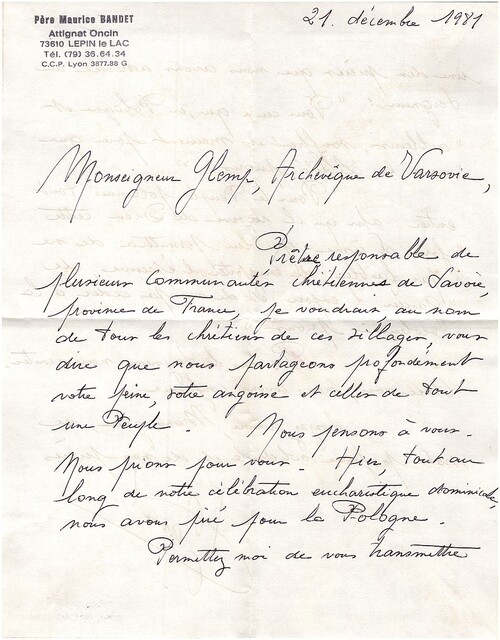 Père Maurice BANDET
Attignat Oncin
73610 LEPIN le LAC
Tél. (79) 36.64.34
C.C.P. Lyon 3877.88 G
21. décembre 1981
Monseigneur Glemp, Archevêque de Varsovie,
Prêtre responsable de
plusieurs communautés chrétiennes de Savoie,
province de France, je voudrais, au nom
de tous les chrétiens de ces villages, vous
dire que nous partageons profondément
votre peine, votre angoisse et celles de tout
une Peuple. Nous pensons à vous.
Nous prions pour vous. Hier, tout au
long de notre célébration eucharistique dominicale,
nous avons prié pour la Pologne.
Permettez moi de vous transmettre